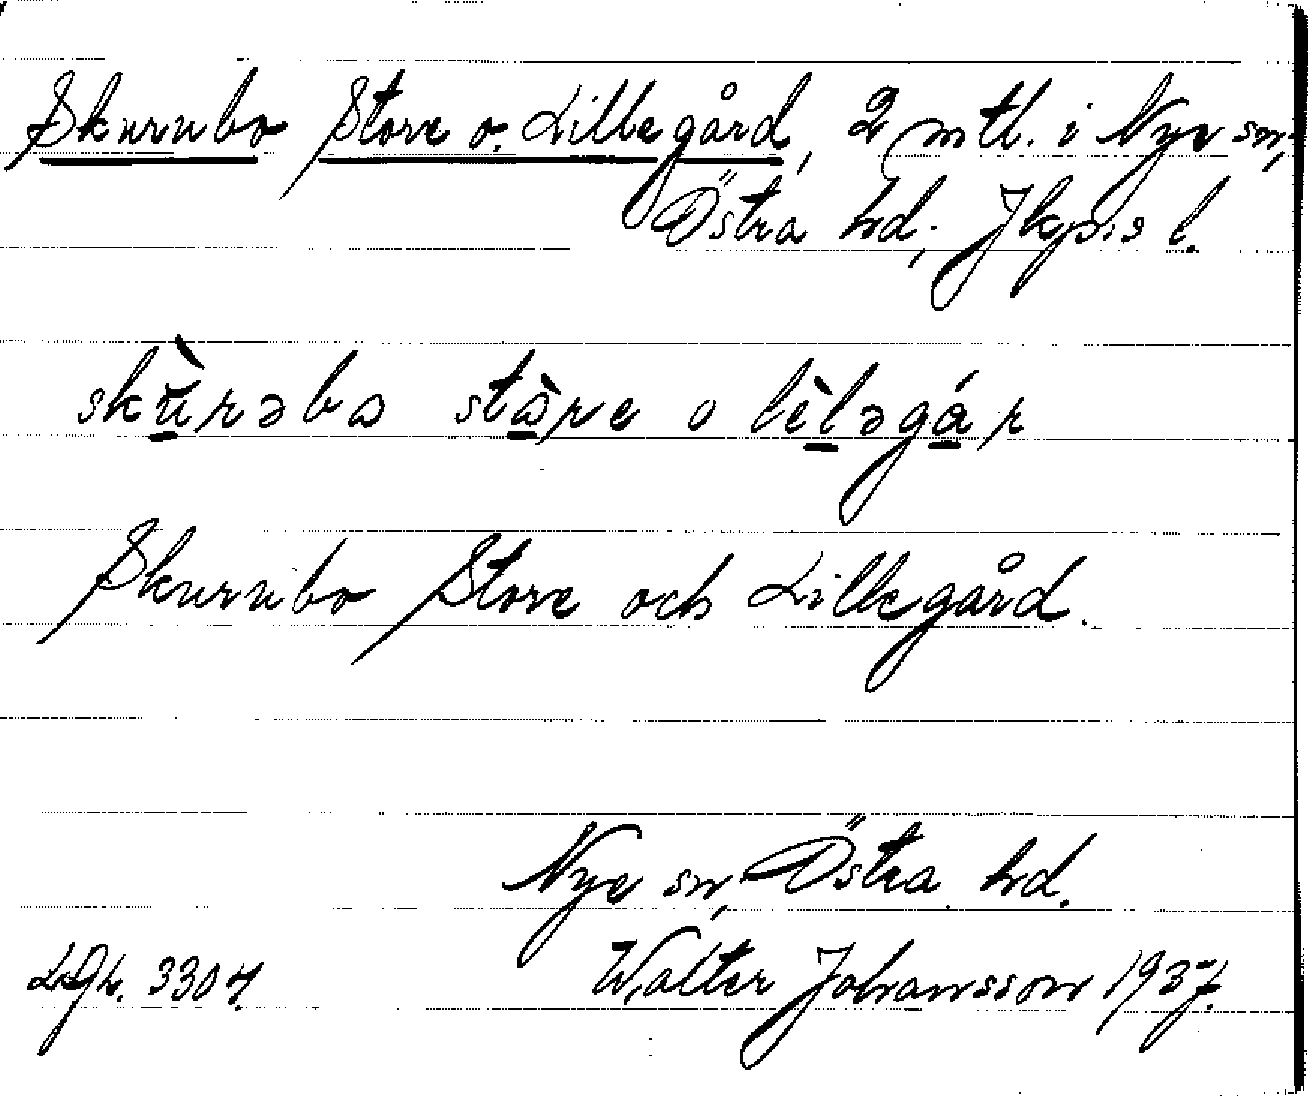 Skurubo Store o. Lillegård, 2 mtl. i Nye sn,
Östra hd; Jkpis l.
skùrəbo stòre o lìləgár
Skurubo Store och Lillegård.
Nye sn, Östra hd.
LGh. 3304. Walter Johansson 1937.